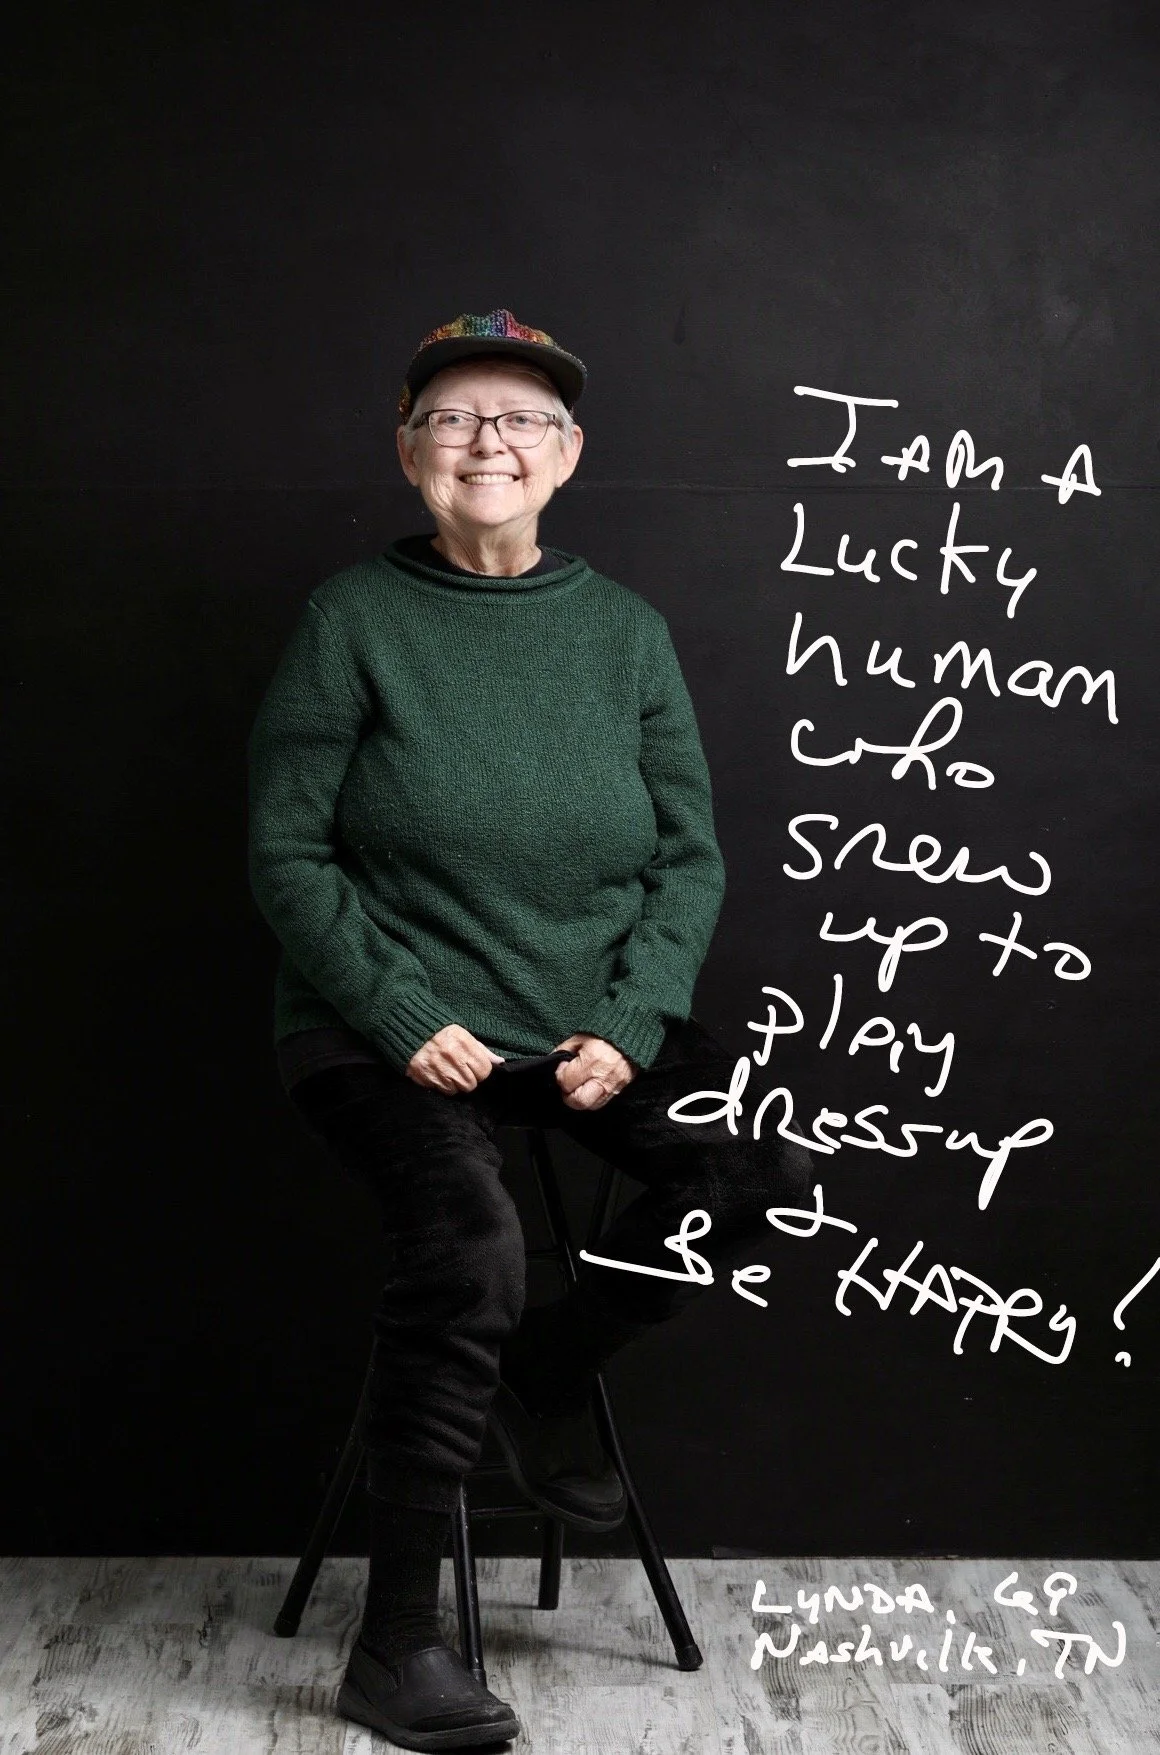 I AM A
Lucky
human
who
snew
up to
play
dressup
&
Be HAPPy!
LYNDA, 69
Nashville, TN